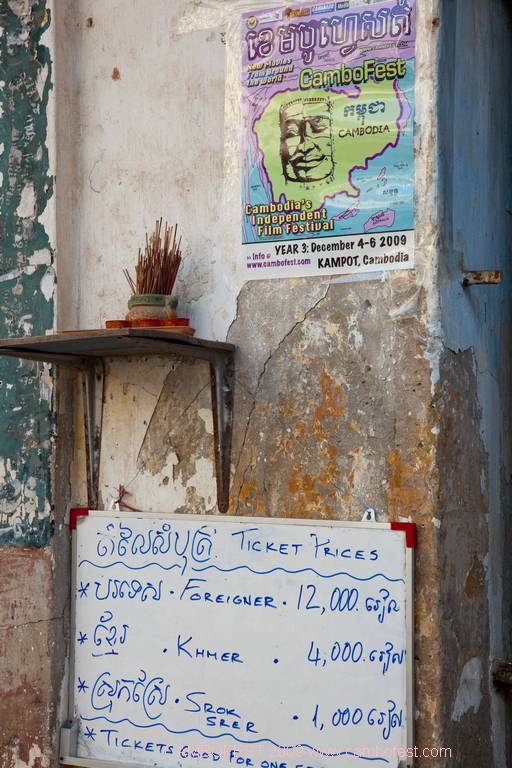 ខេមបូហ្វេសត៍
New Movies
From around
the World
CamboFest
កម្ពុជា
CAMBODIA
Cambodia's
Independent
Film Festival
YEAR 3: December 4-6 2009
›› Info @
www.cambofest.com
KAMPOT, Cambodia
តំលៃសំបុត្រ TICKET PRICES
* បរទេស · FOREIGNER · 12,000 រៀល
* ខ្មែរ · KHMER · 4,000 រៀល
* ស្រុកស្រែ · SROK SRER · 1,000 រៀល
* TICKETS GOOD FOR ONE